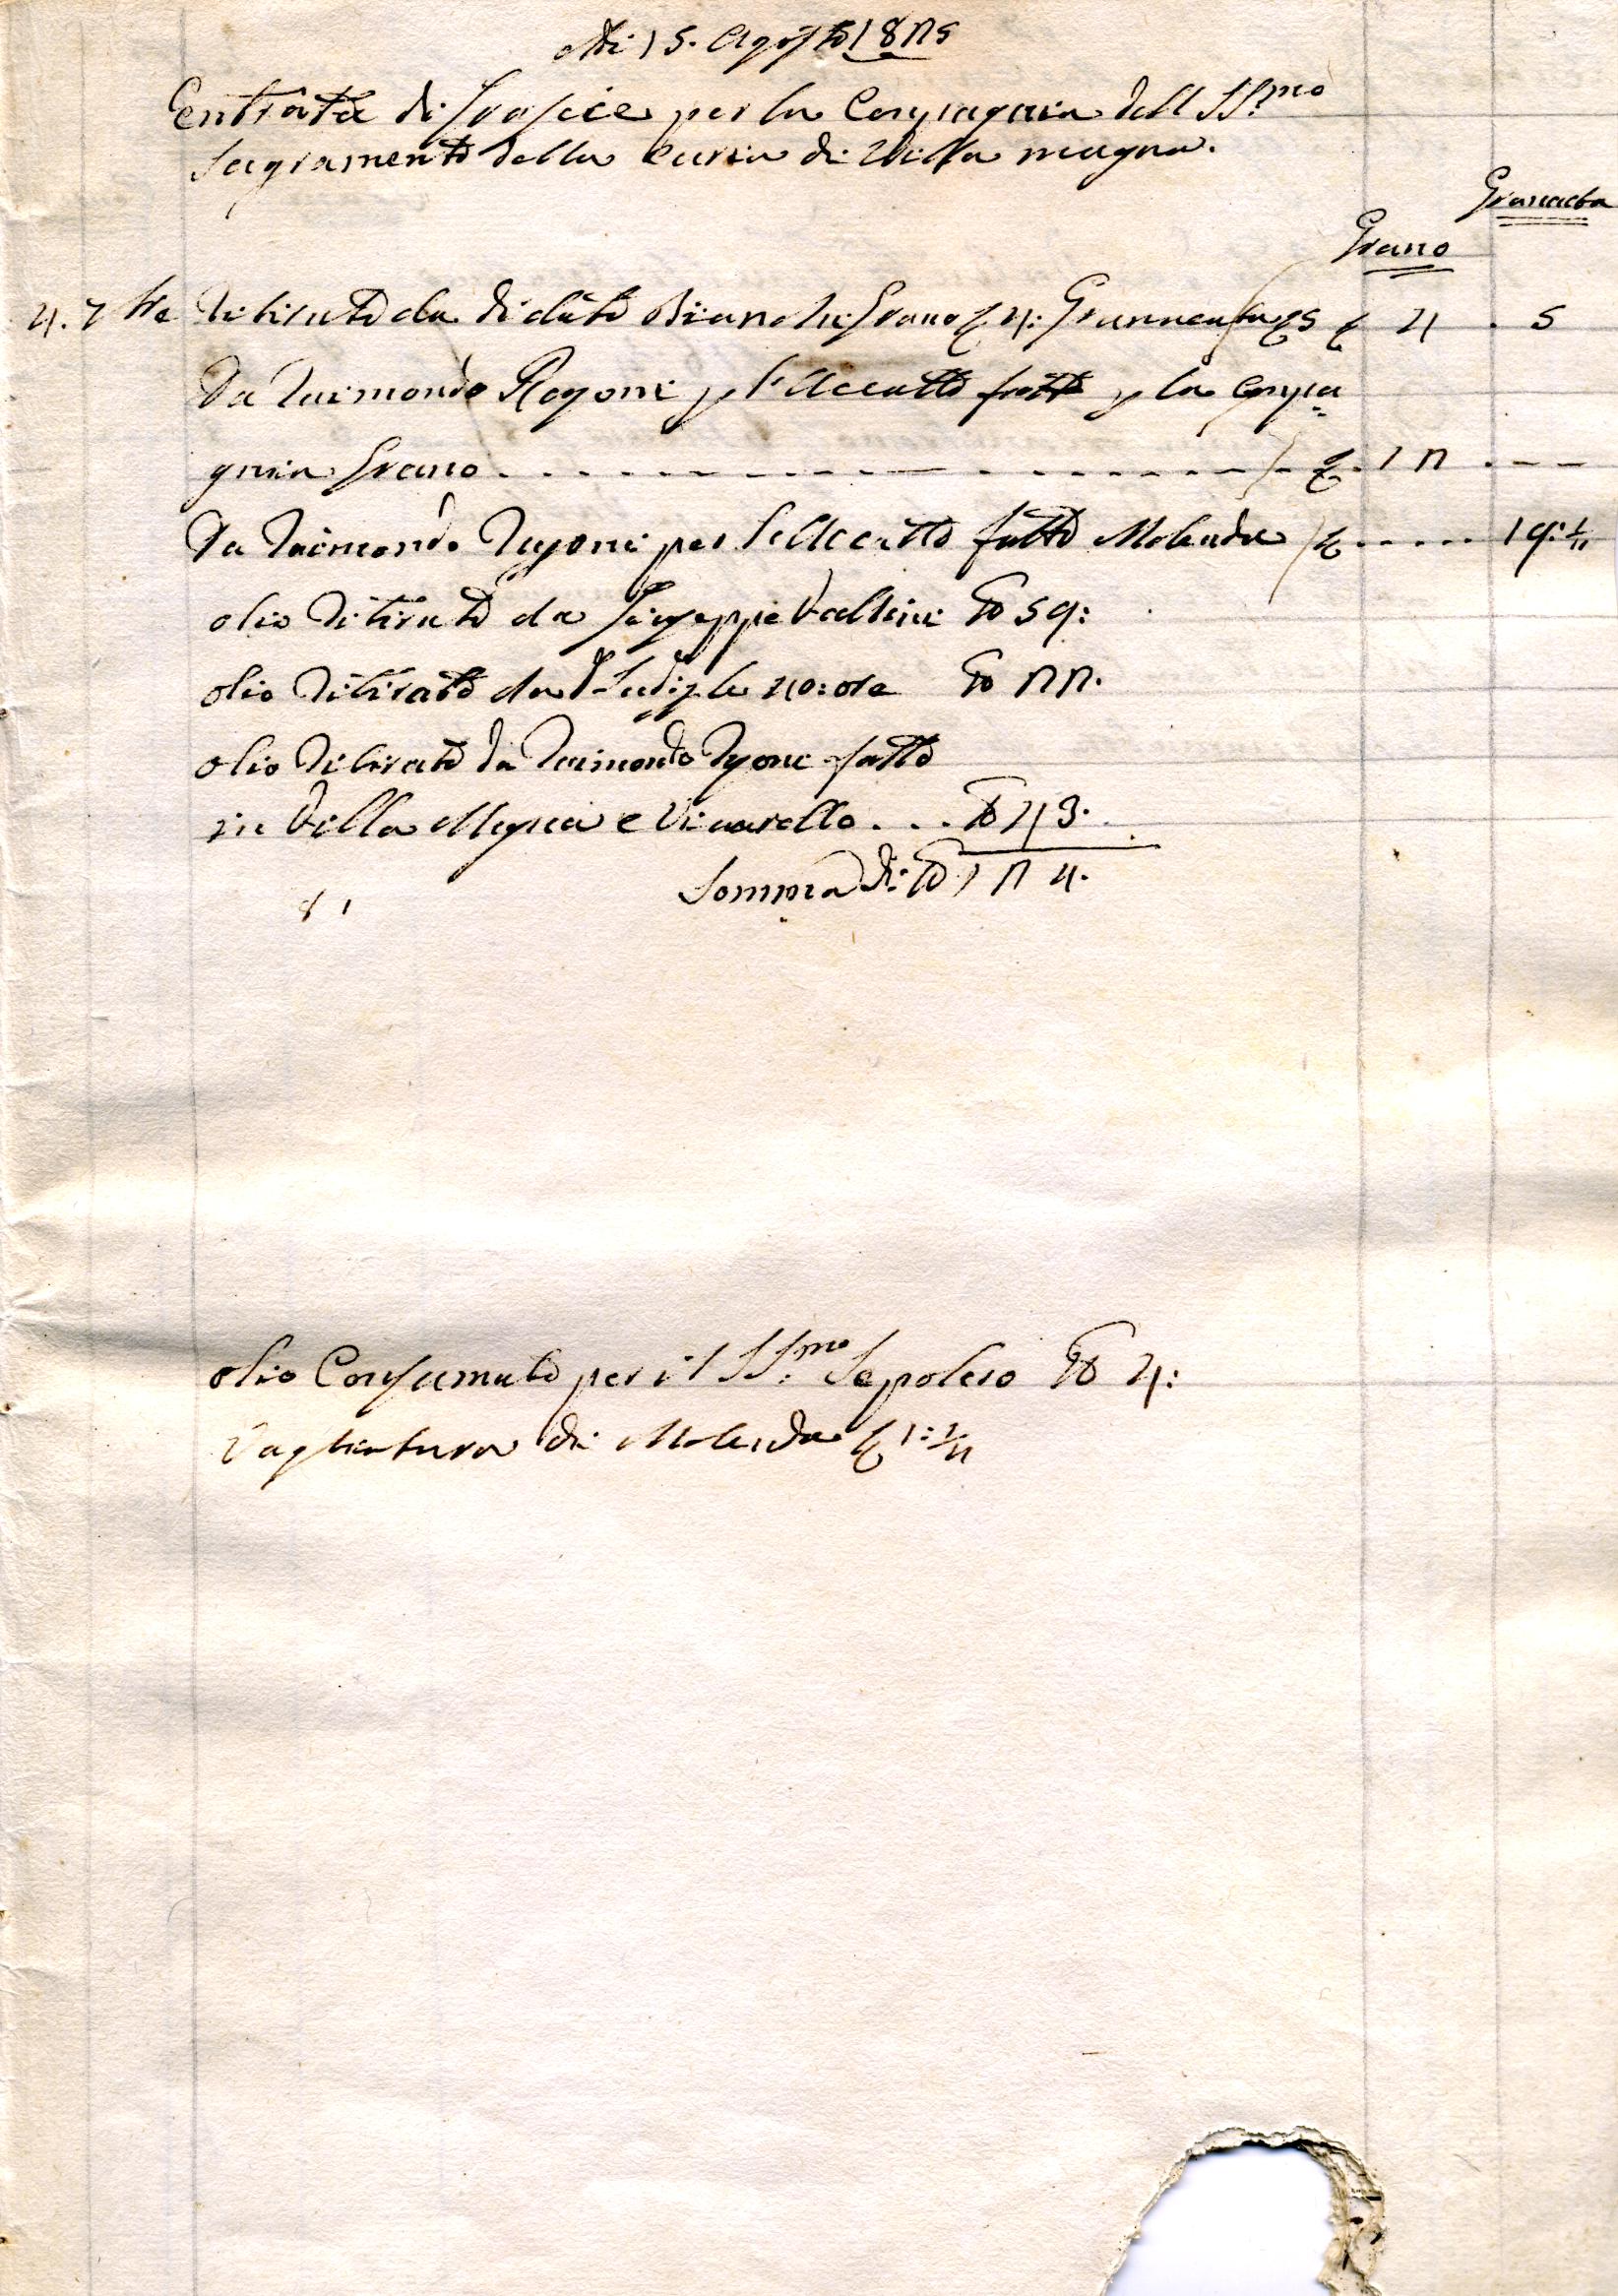 Adi 15. Agosto 1825
Eentrata di Grascie per la Conpagnia dell SS.mo
Sagramento della Curia di Villa magna.
Granata
Grano
4. 7bre Ritirato da Bianchi Grano q 4: Grannata q 5 q 4 . 5
Da Raimondo Ragoni p l'Accatto fatto p la Conpa=
gnia Grano q. 12
Da Raimondo Ragoni per l'Accatto fatto Molenda q 19:½
olio Ritirato da Giuseppe lb 59:
olio Ritirato da le 40: ore lb 22.
olio Ritirato da Raimondo Rgoni fatto
in Villa Magna e Vicarello ... lb 43.
Somma di lb 124.
olio Consumato per il SS.mo Sepolcro lb 4:
Vagliatura di Molenda q 1:½